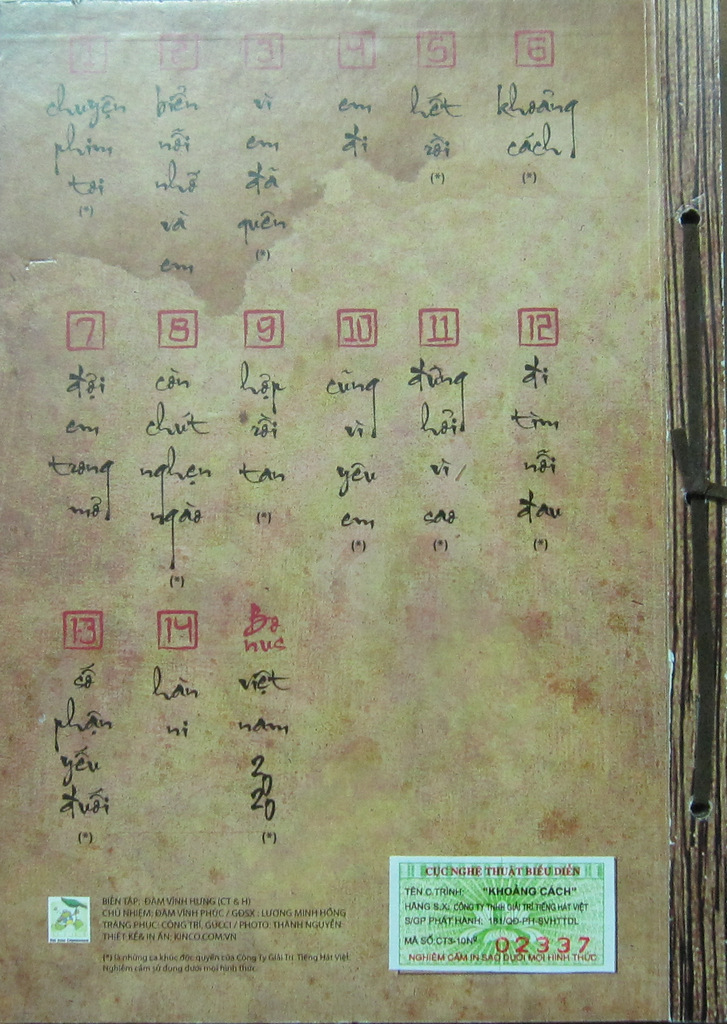 1
chuyện
phim
tôi
(*)
2
biển
nỗi
nhớ
và
em
3
vì
em
đã
quên
(*)
4
em
đi
5
hết
rồi
(*)
6
khoảng
cách
(*)
7
đợi
em
trong
mơ
8
còn
chút
nghẹn
ngào
(*)
9
hợp
rồi
tan
(*)
10
cũng
vì
yêu
em
(*)
11
đừng
hỏi
vì
sao
(*)
12
đi
tìm
nỗi
đau
(*)
13
số
phận
yếu
đuối
(*)
14
hàn
ni
Bo
nus
việt
nam
20
20
(*)
BIÊN TẬP: ĐÀM VĨNH HƯNG (CT & H)
CHỦ NHIỆM: ĐÀM VĨNH PHÚC / GĐSX: LƯƠNG MINH HỒNG
TRANG PHỤC: CÔNG TRÍ, GUCCI / PHOTO: THÀNH NGUYỄN
THIẾT KẾ & IN ẤN: KINCO.COM.VN
(*) là những ca khúc độc quyền của Công Ty Giải Trí Tiếng Hát Việt
Nghiêm cấm sử dụng dưới mọi hình thức
CỤC NGHỆ THUẬT BIỂU DIỄN
TÊN C.TRÌNH: "KHOẢNG CÁCH"
HÃNG S.X: CÔNG TY TNHH GIẢI TRÍ TIẾNG HÁT VIỆT
S/GP PHÁT HÀNH: 181/QĐ-PH-SVHTTDL
MÃ SỐ:CT3-10Nº 02337
NGHIÊM CẤM IN SAO DƯỚI MỌI HÌNH THỨC